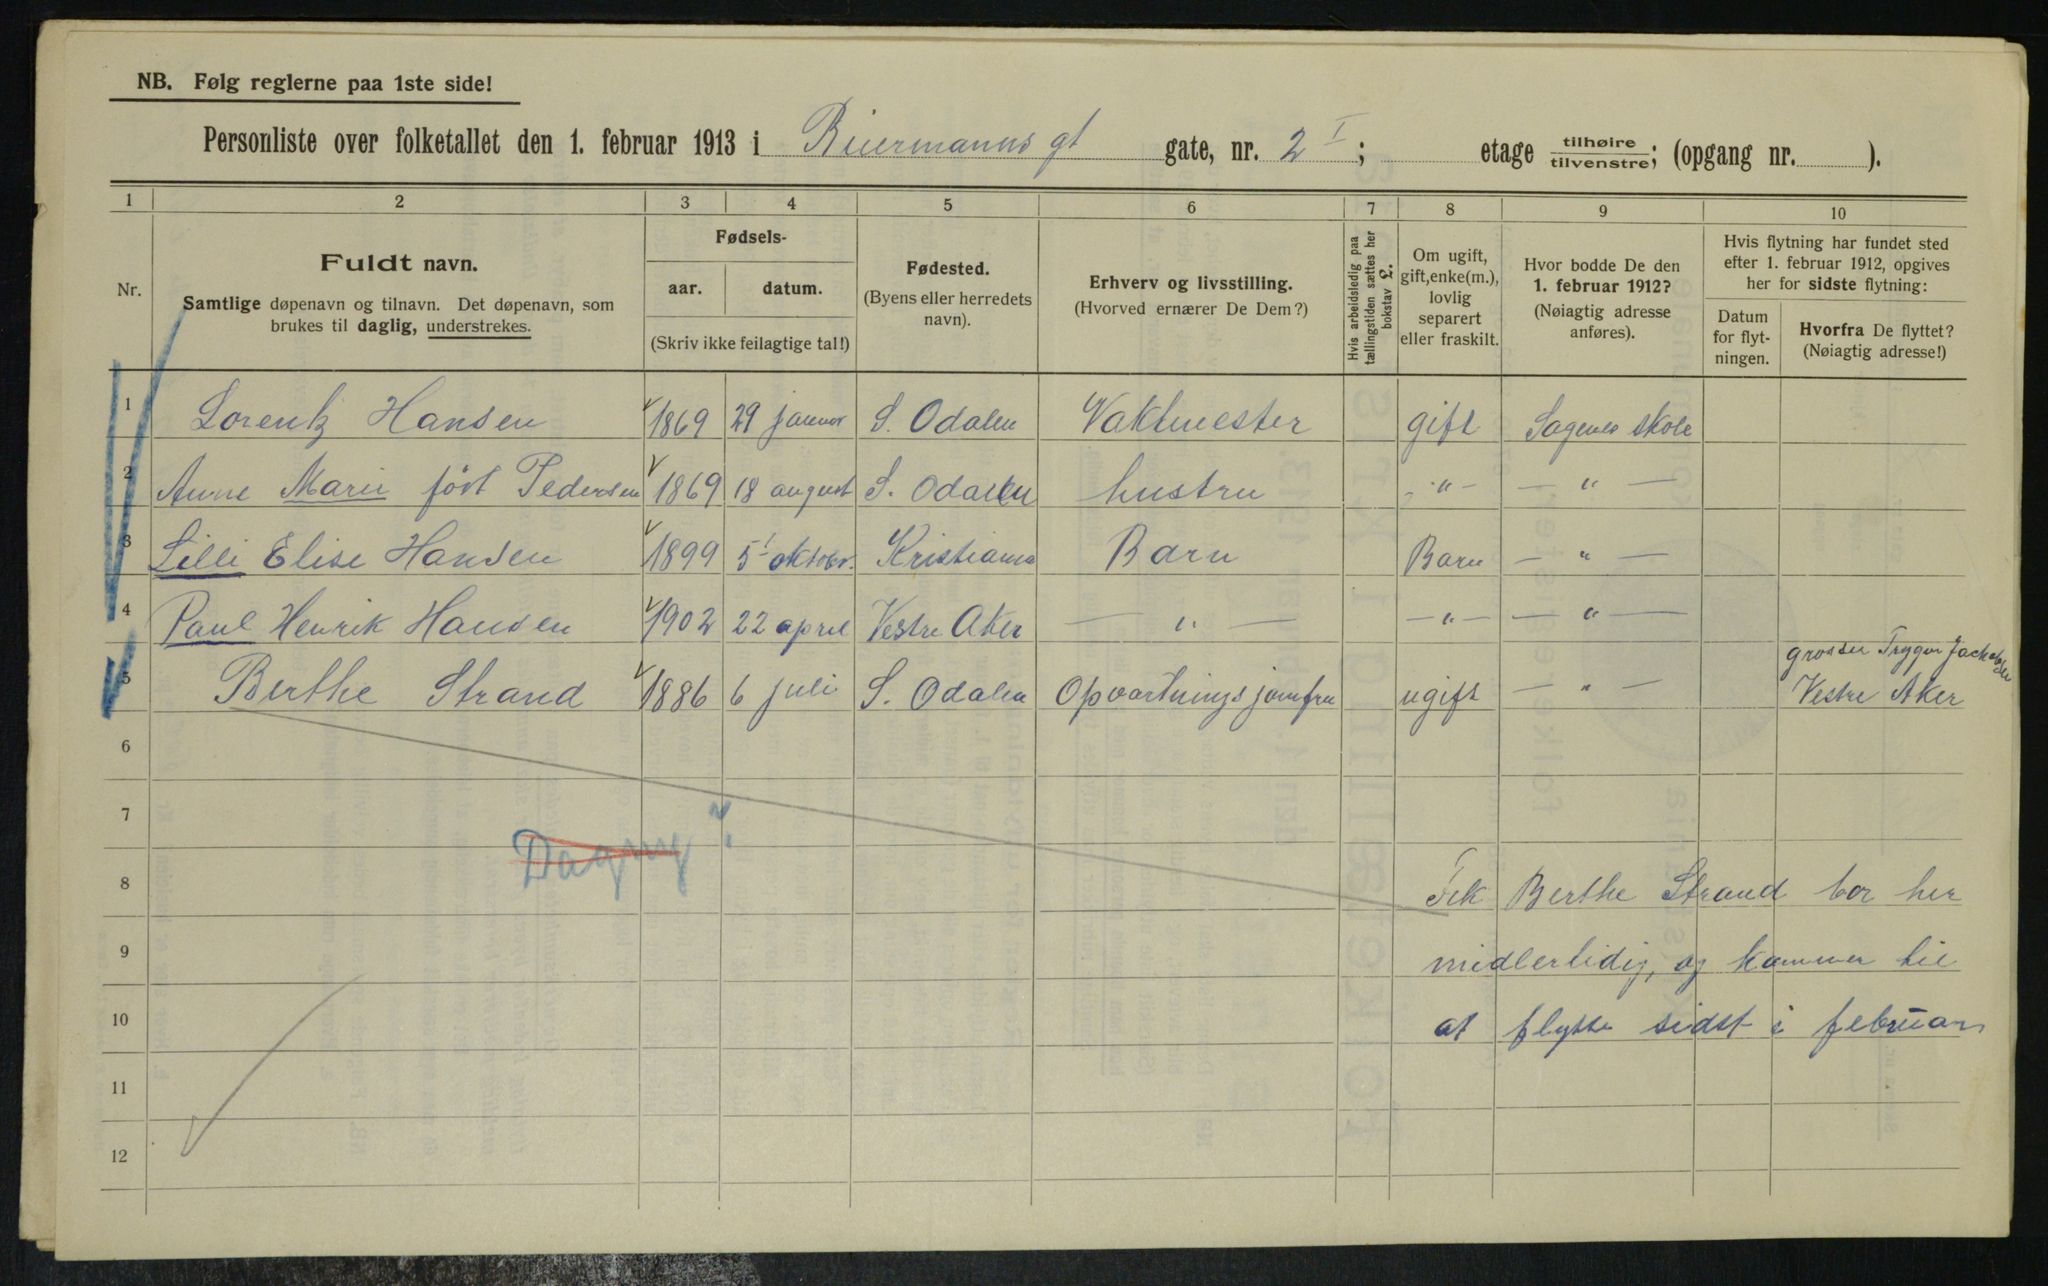 NB. Følg reglerne paa 1ste side!
Personliste over folketallet den 1. februar 1913 i Biermanns gt gate, nr. 2 I; etage tilhøire/tilvenstre; (opgang nr. ).
1 2 3 4 5 6 7 8 9 10
Nr.
Fuldt navn.
Samtlige døpenavn og tilnavn. Det døpenavn, som
brukes til daglig, understrekes.
Fødsels-
aar. datum.
(Skriv ikke feilagtige tal!)
Fødested.
(Byens eller herredets
navn).
Erhverv og livsstilling.
(Hvorved ernærer De Dem?)
Hvis arbeidsledig paa
tællingstiden sættes her
bokstav L.
Om ugift,
gift, enke(m.),
lovlig
separert
eller fraskilt.
Hvor bodde De den
1. februar 1912?
(Nøiagtig adresse
anføres).
Hvis flytning har fundet sted
efter 1. februar 1912, opgives
her for sidste flytning:
Datum
for flyt-
ningen.
Hvorfra De flyttet?
(Nøiagtig adresse!)
1 Lorentz Hansen 1869 29 januar S. Odalen Vaktmester gift Sagenes skole
2 Anne Marie født Pedersen 1869 18 august S. Odalen hustru - " - - " -
3 Lilli Elise Hansen 1899 5 oktobr. Kristiania Barn Barn - " -
4 Paul Henrik Hansen 1902 22 april Vestre Aker - " - - " - - " -
grosser Trygve Jackobsen
5 Berthe Strand 1886 6 juli S. Odalen Opvartningsjomfru ugift - " - Vestre Aker
6
7
Dagny ?
8 Frk Berthe Strand bor her
9 midlertidig, og kommer til
10 at flytte sidst i februar
11
12